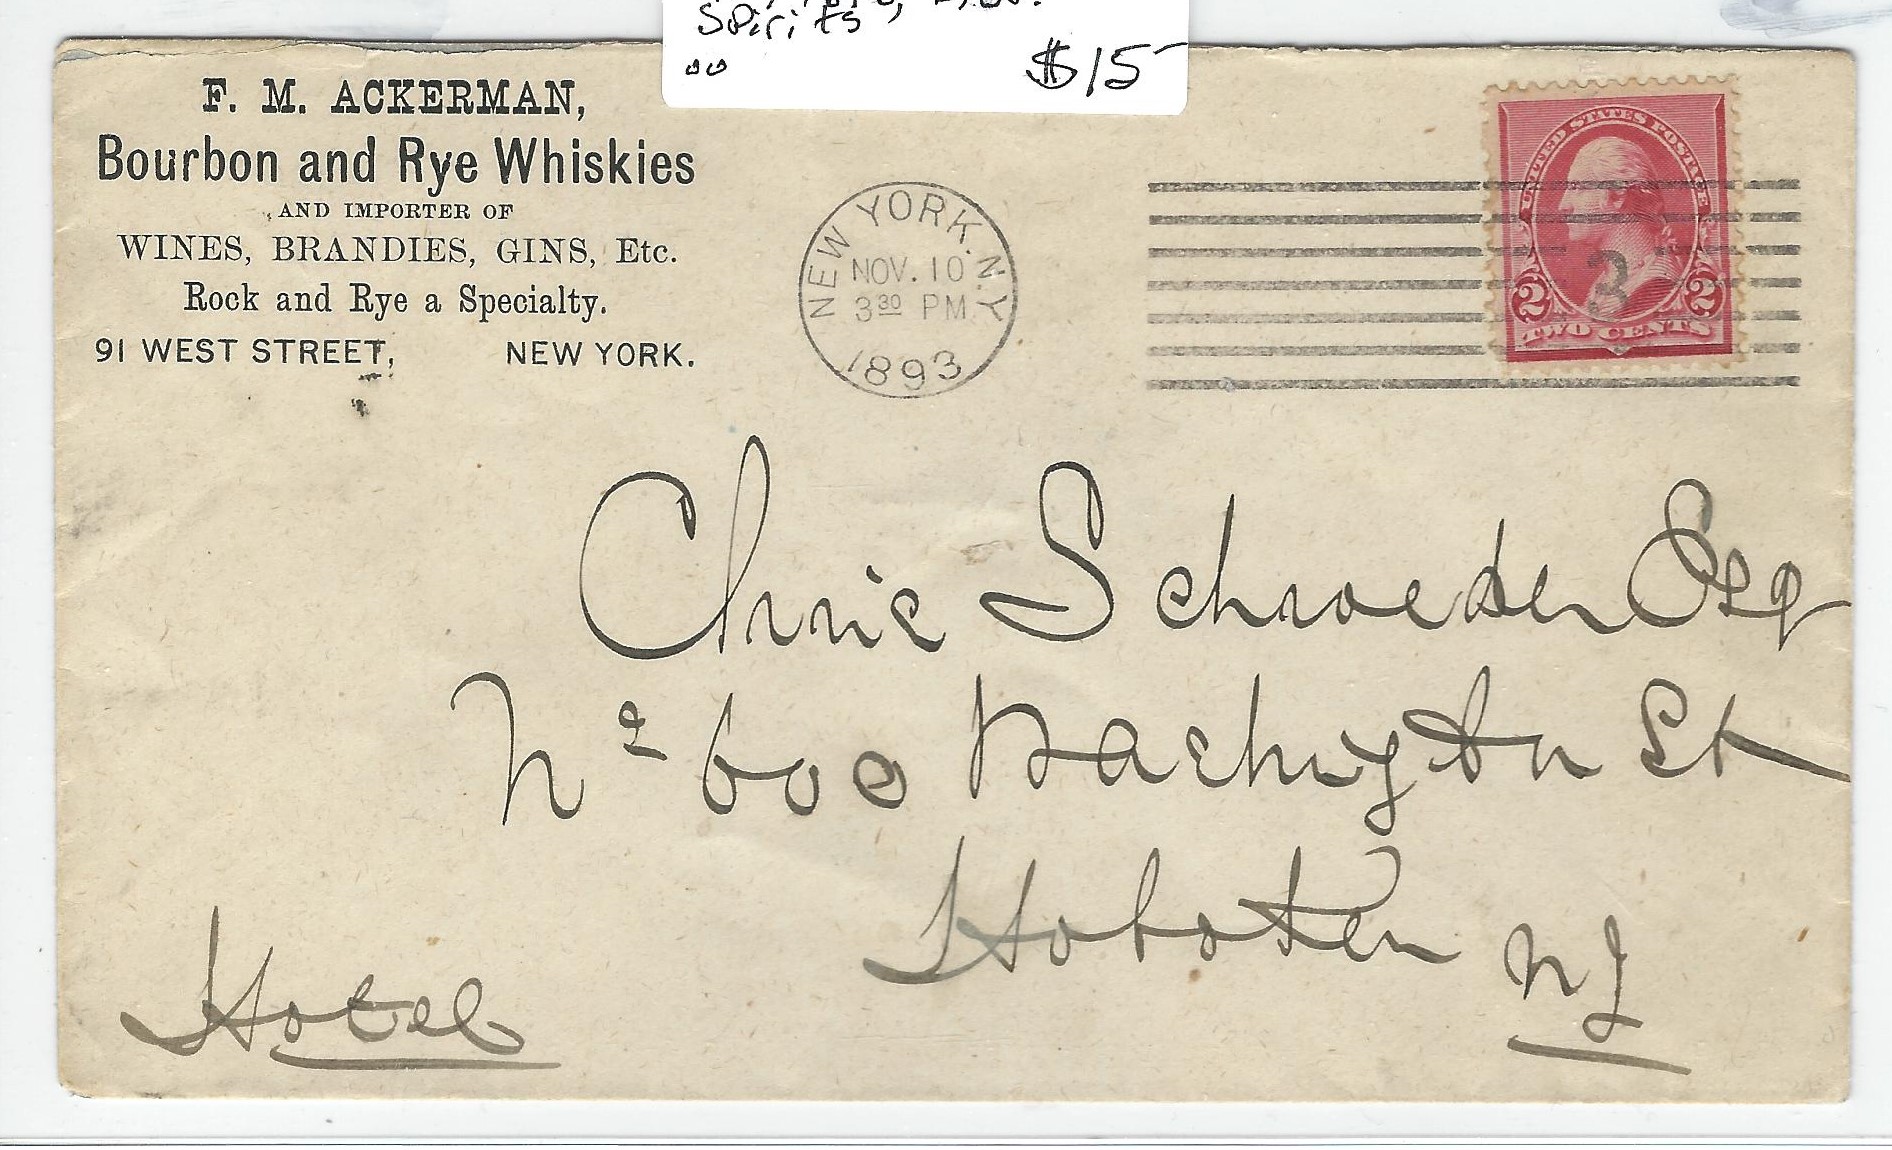 Spirits
$15
F. M. ACKERMAN,
Bourbon and Rye Whiskies
AND IMPORTER OF
WINES, BRANDIES, GINS, Etc.
Rock and Rye a Specialty.
91 WEST STREET, NEW YORK.
NEW YORK. N.Y.
NOV. 10
3 30 PM
1893
UNITED STATES POSTAGE
3
2 2
TWO CENTS
Chris Schroeder Esq
No 600 Washington St
Hoboken NJ
Hotel